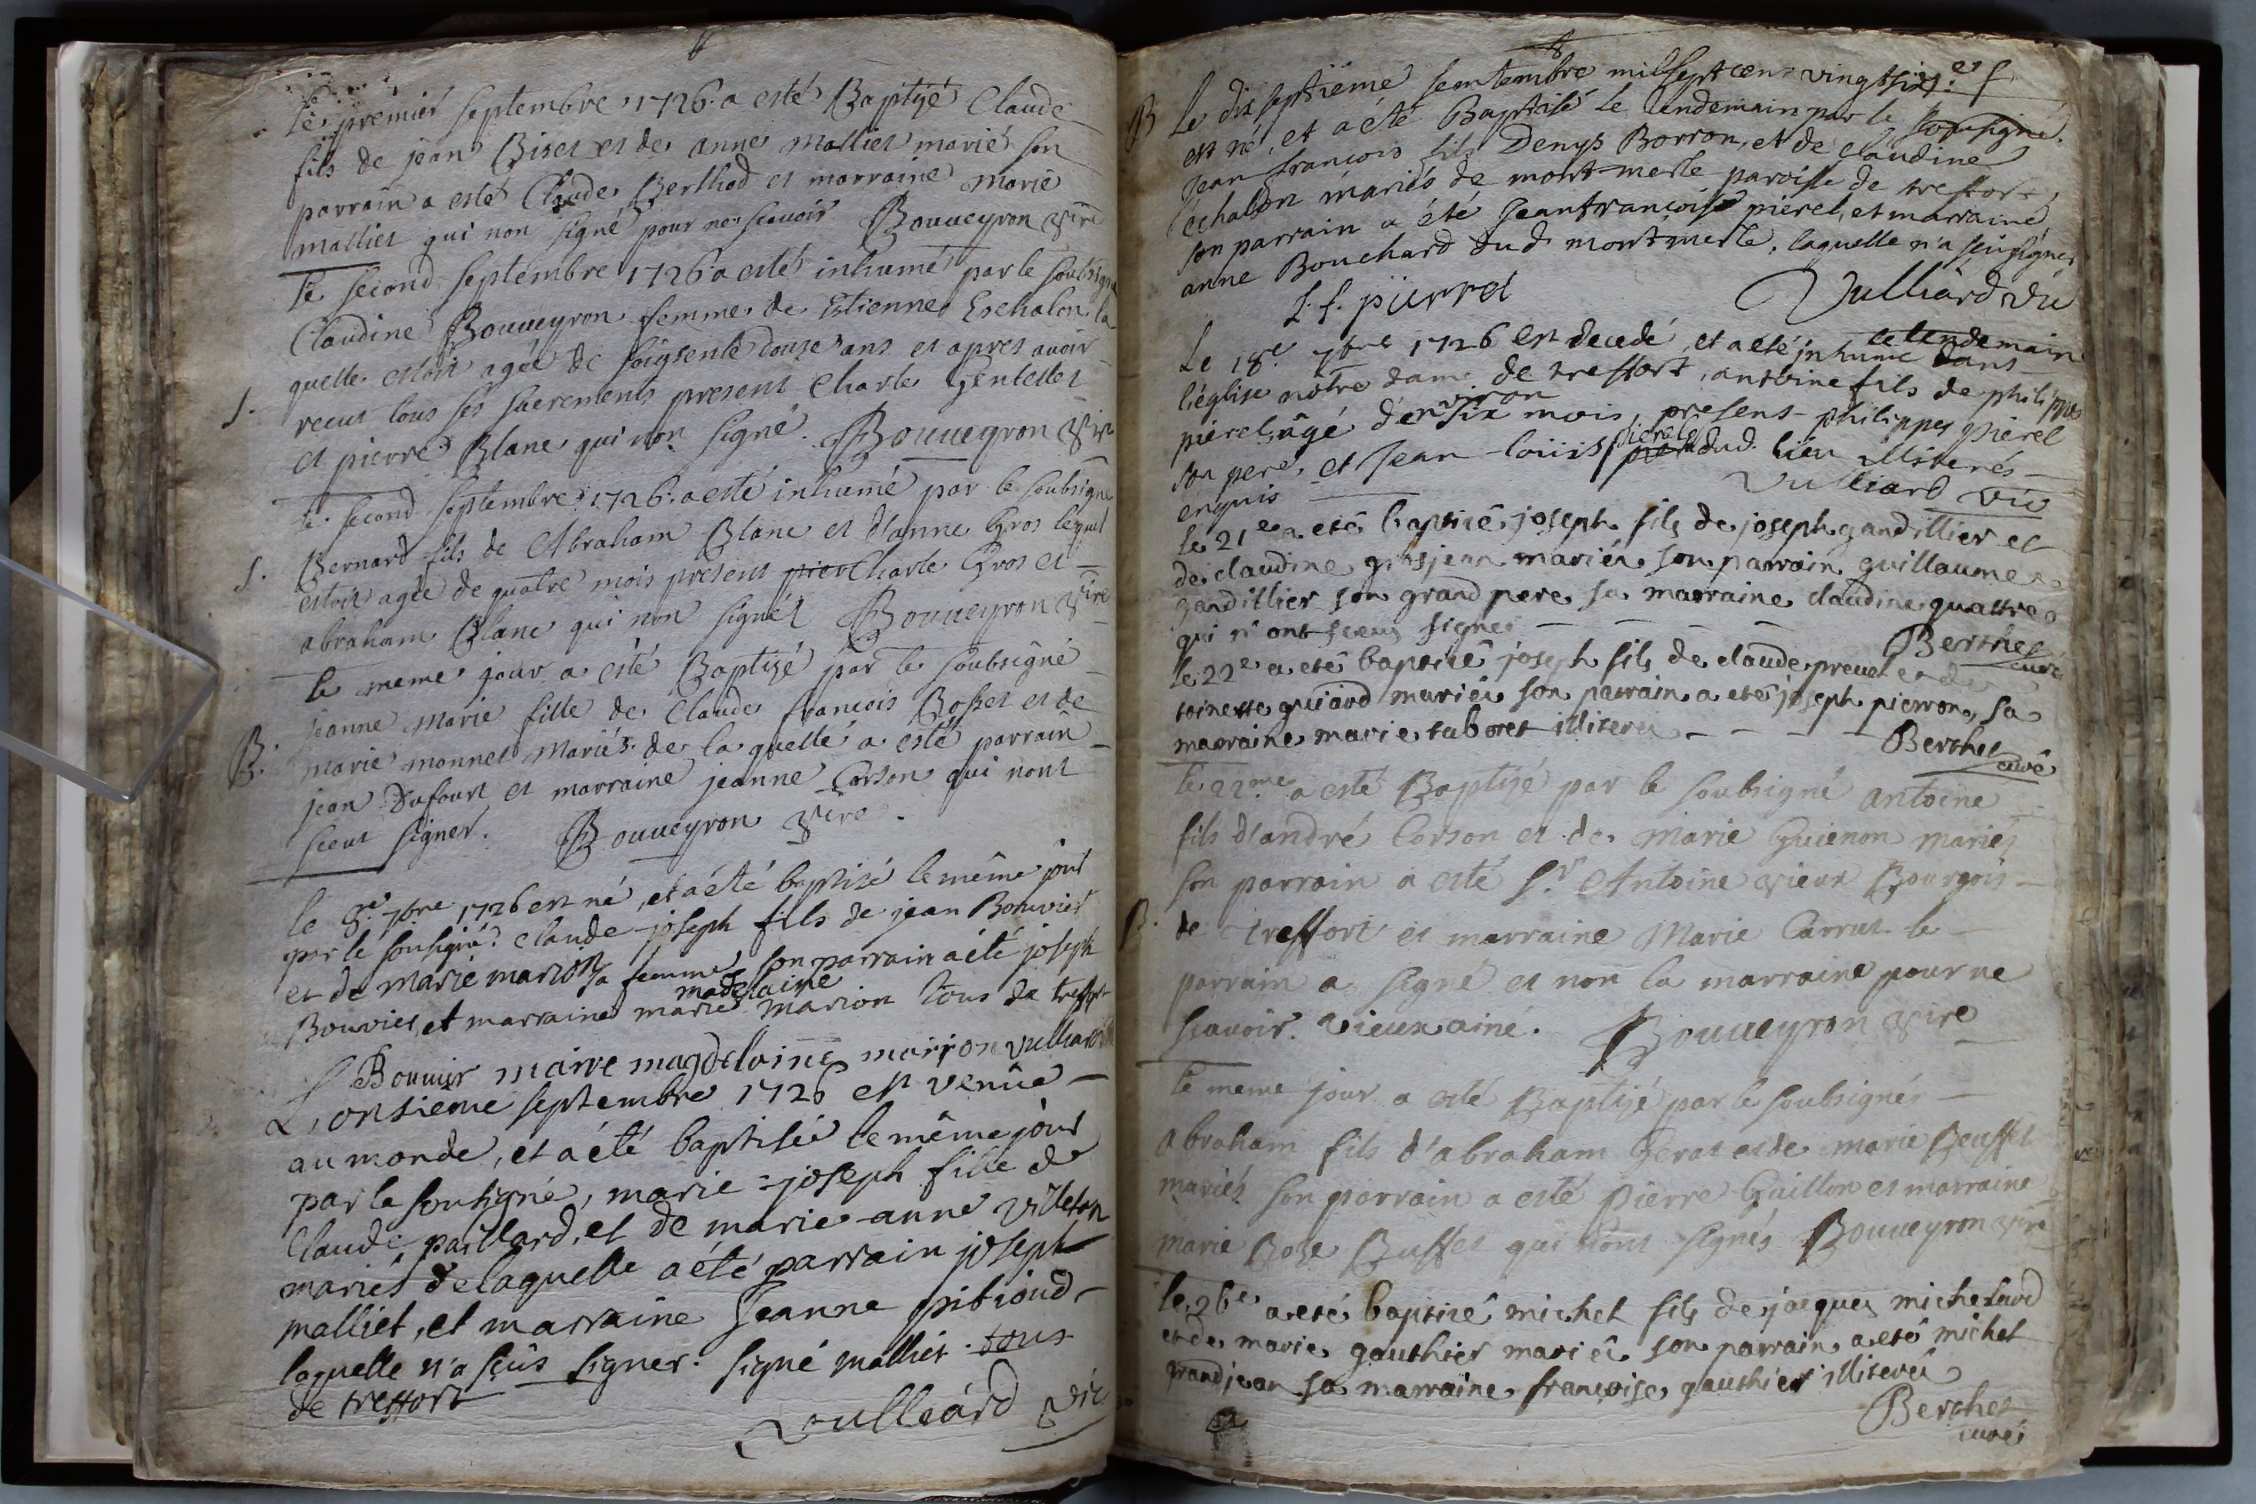 Le premier septembre 1726 a esté Baptizé Claude
fils de jean Biset et de anne Malliet marié son
parrain a esté Claude Berthod et marraine marie
malliet qui non signé pour ne scavoir Bouueyron vire
le second septembre 1726 a esté inhumé par le soubsigné
Claudine Bouueyron femme de Estienne Eschalon la
quelle estoit agée de soigsente douze ans et apres avoir
S. receut tous ses sacrements present Charle Gentellet
et pierre Blanc qui non signé. Bouueyron vire
le second septembre 1726 a esté inhumé par le soubsigné
S. Bernard fils de Abraham Blanc et d'anne Gros lequel
estoit agée de quatre mois present pier Charle Gros et
abraham Blanc qui non signét Bouueyron vire
le meme jour a esté Baptizé par le soubsigné
jeanne Marie fille de Claude francois Bosset et de
B. marie monnet mariés de la quelle a esté parrain
jean Dufour et marraine jeanne Corson qui nont
sceut signer. Bouueyron vire.
le 8e 7bre 1726 est né, et a été baptisé le même jour
par le sousigné claude-joseph fils de jean Bouvier
et de marie marion sa femme son parrain a été joseph
madelaine
Bouvier, et marraine marie marion tous de treffort
J Bouuier marre magdelaine marion vulliard
L'onsieme septembre 1726 est venüe
au monde, et a été baptisée le même jour
par le sousigné, marie-joseph fille de
claude paillard, et de marie-anne villeton
mariés de laquelle a été parrain joseph
malliet, et marraine Jeanne pitioud
laquelle n'a sçûs signer. signé malliet. tous
de treffort
Vulliard vic
B Le dix septiéme septembre mil sept cens vingt six
est né, et a été Baptisé le lendemain par le sousigné
Jean francois fils Denys Borron, et de claudine
échalon mariés de mont-merle paroisse de treffort,
son parrain a été Jeanfrançois pierel, et marraine
anne Bouchard dud. montmerle, laquelle n'a sçu signer
J. f. pierrel Vulliard vic
le lendemain
Le 18e 7bre 1726 est decedé, et a été inhumé dans
l'église nôtre dame de treffort, antoine fils de philippes
pierel âgé d'environ six mois, presens philippes pierel
son pere, et Jean-loüis pierel dud. liëu illiterés
enquis Vulliard vic
le 21e a eté baptisé joseph fils de joseph gandillier et
de claudine grosjean mariés son parrain guillaume
gandillier son grand pere sa marraine claudine quattre
qui n'ont sceus signer
Berthet curé
le 22e a eté baptisé joseph fils de claude prevel et de
toinette guiard mariés son parrain a eté joseph pierron, sa
marraine marie taboret illiterés
Berthet curé
le 22me a esté Baptizé par le soubsigné antoine
fils d'andré Corson et de Marie Guienon Mariés
son parrain a esté Sr Antoine vieux Bourgois
B. de treffort et marraine Marie Carrut le
parrain a signé et non la marraine pour ne
scavoir. vieux ainé. Bouueyron vire
le meme jour a esté Baptizé par le soubsignér
abraham fils d'abraham Gerat et de marie Beuffet
mariéz son parrain a esté Pierre Guillon et marraine
marie Roze Buffet qui n'ont signés Bouueyron vire
le 26e a eté baptisé michel fils de jacques michelard
et de marie gauthier mariés son parrain a eté michel
grandjean sa marraine françoise gauthier illiterés
Berthet
curé